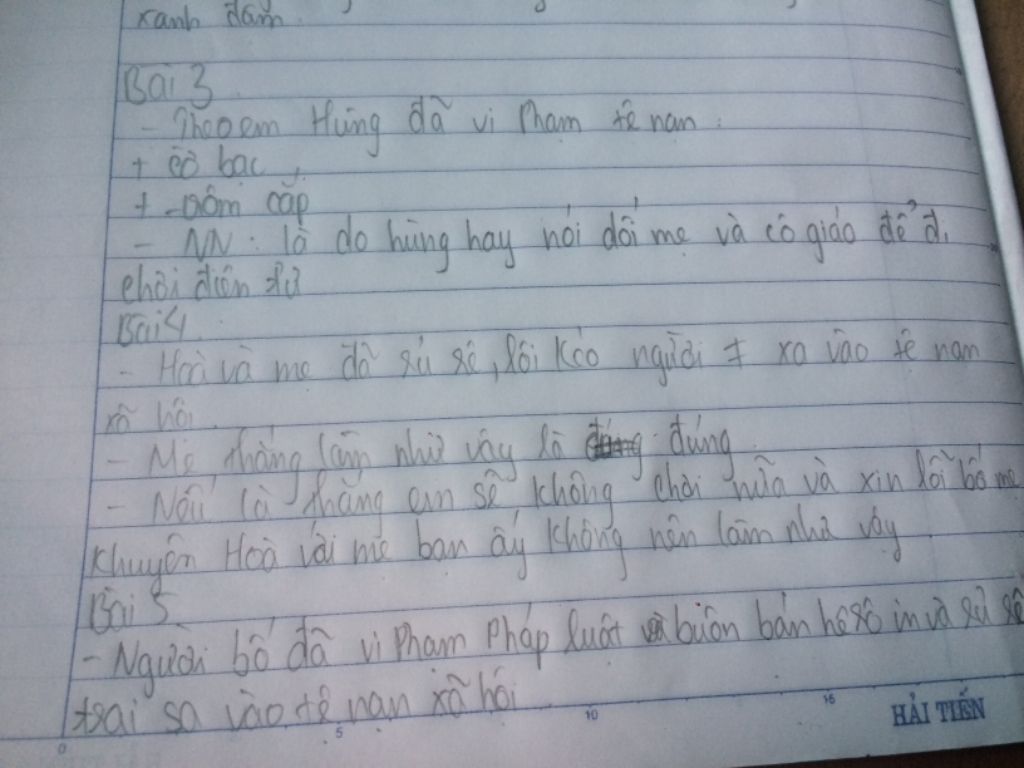 xanh đấm.
Bài 3
- Theo em Hùng đã vi Phạm tệ nạn:
+ cờ bạc,
+ trộm cắp
- NN: là do hùng hay nói dối mẹ và cô giáo để đi
chơi điện tử
Bài 4.
- Hoà và mẹ đã xú sê, lôi kéo người ≠ xa vào tê nạn
xã hội.
- Mẹ thắng làm như vậy là đúng
- Nếu là thắng em sẽ không chơi nữa và xin lỗi bố mẹ
khuyên Hoà với mẹ bạn ấy không nên làm như vậy
Bài 5.
- Người bố đã vi Phạm Pháp luật buôn bán hêrôin và xủ sê
trai sa vào tệ nạn xã hội.
0 5 10 15 HẢI TIẾN